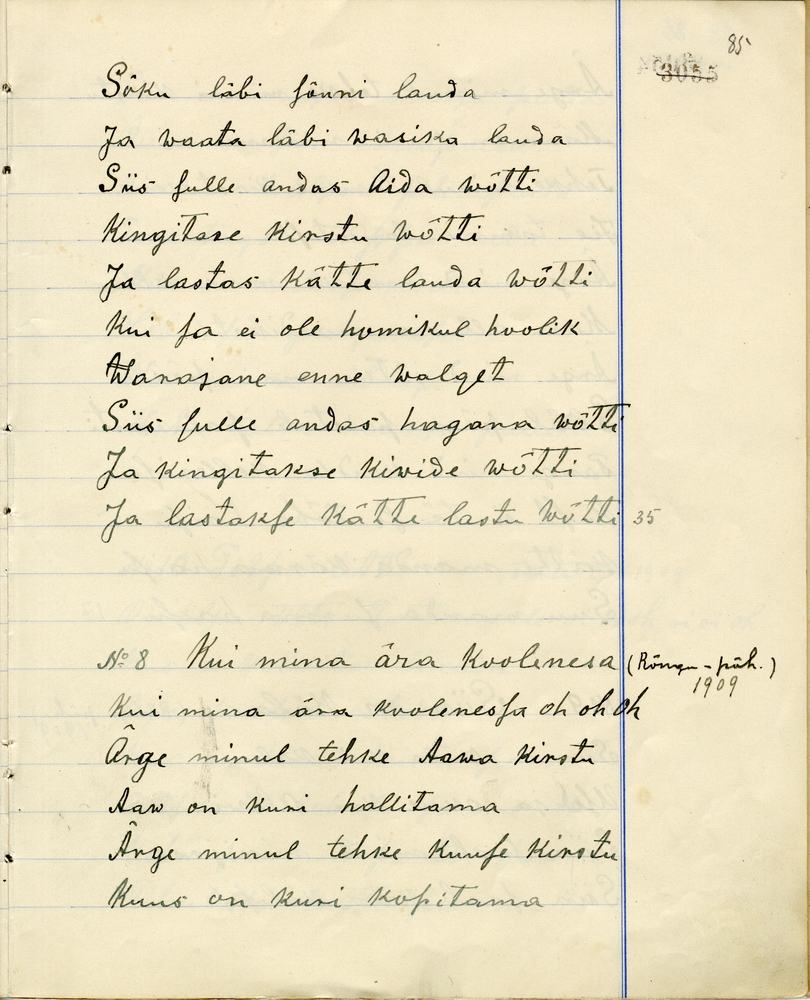 85
3055
Sõku läbi sõnni lauda
Ja waata läbi wasika lauda
Siis sulle andas Aida wõtti
Kingitase Kirstu wõtti
Ja lastas Kätte lauda wõtti
Kui sa ei ole homikul hoolik
Warajane enne walget
Siis sulle andas hagana wõtti
Ja kingitakse kiwide wõtti
Ja lastakse Kätte lastu wõtti 35
№ 8 Kui mina ära koolenesa (Rõngu-põh.)
1909
Kui mina ära koolenessa oh oh oh
Ärge minul tehke Aawa Kirstu
Aaw on kuri hallitama
Ärge minul tehke Kuuse Kirstu
Kuus on kuri kopitama